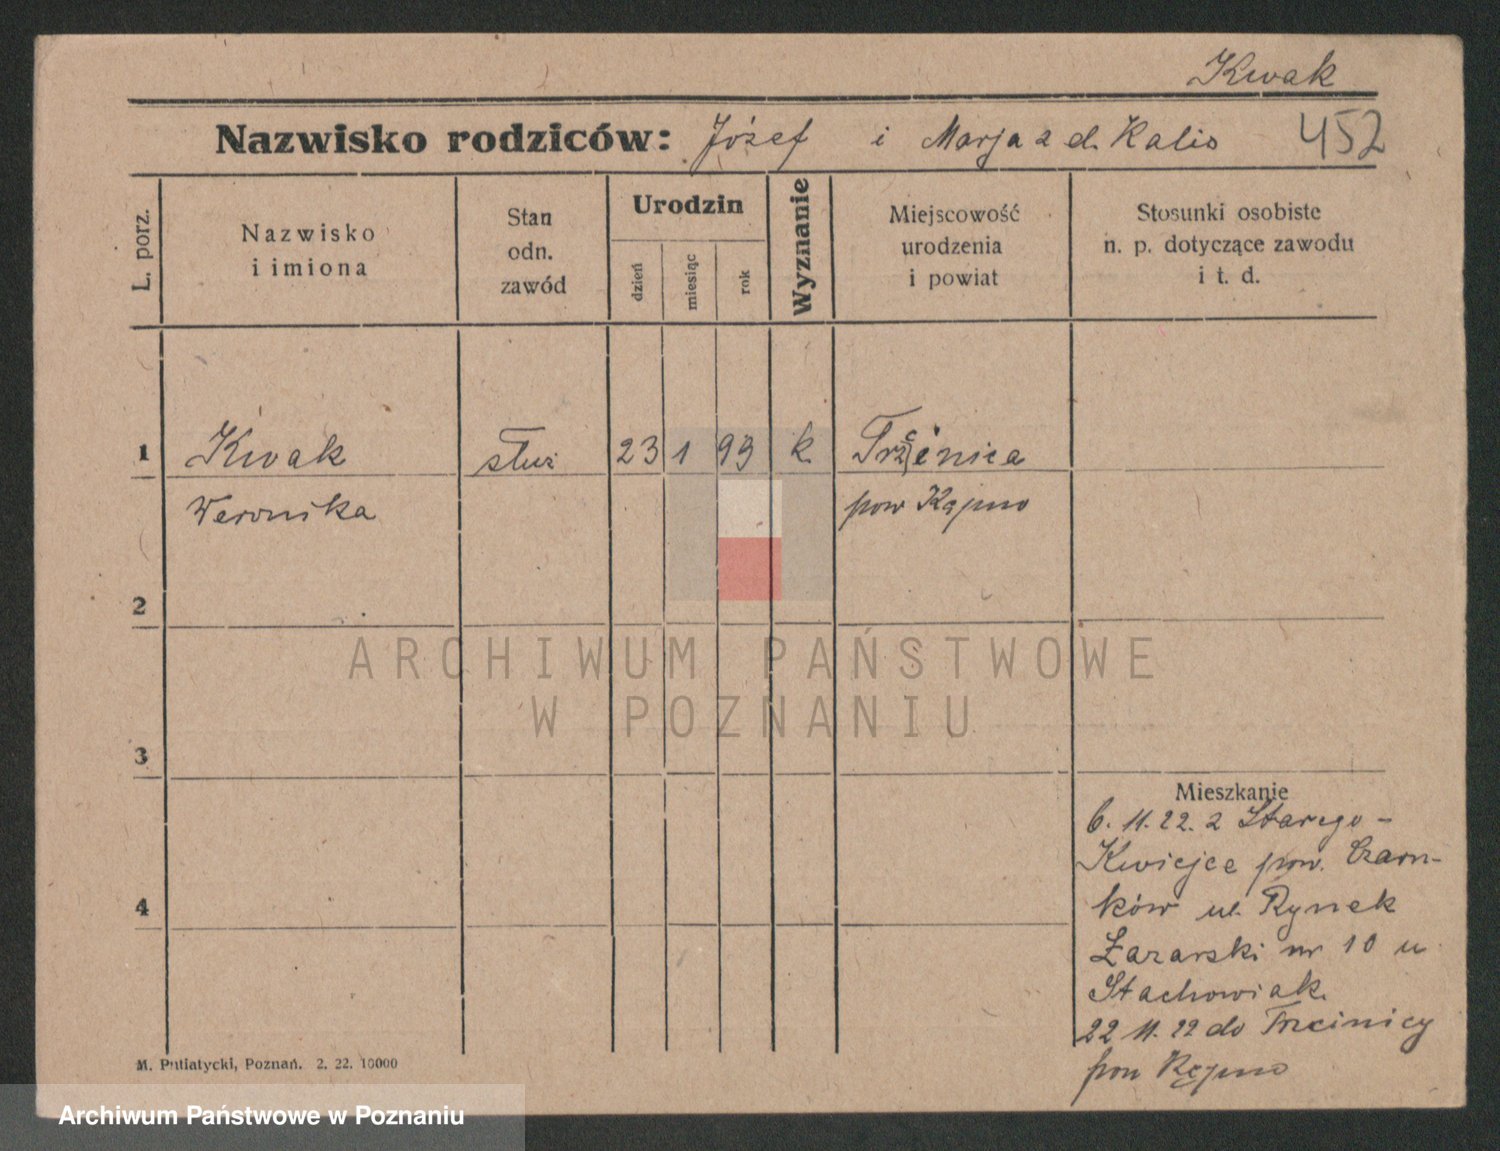 Kwak
Nazwisko rodziców: Józef i Marja z d. Kalis 452
L. porz.
Nazwisko
i imiona
Stan
odn.
zawód
Urodzin
dzień
miesiąc
rok
Wyznanie
Miejscowość
urodzenia
i powiat
Stosunki osobiste
n. p. dotyczące zawodu
i t. d.
1 Kwak służ 23 1 93 k. Trzcinica
Weronika pow Kępno
2
ARCHIWUM PAŃSTWOWE
W POZNANIU
3
Mieszkanie
6. 11. 22. z Starego-
Kwiejce pow. Czarn-
4
ków ul. Rynek
Łazarski nr 10 u
Stachowiak.
22 11. 22 do Trzcinicy
pow Kępno
M. Putiatycki, Poznań. 2. 22. 10000
Archiwum Państwowe w Poznaniu